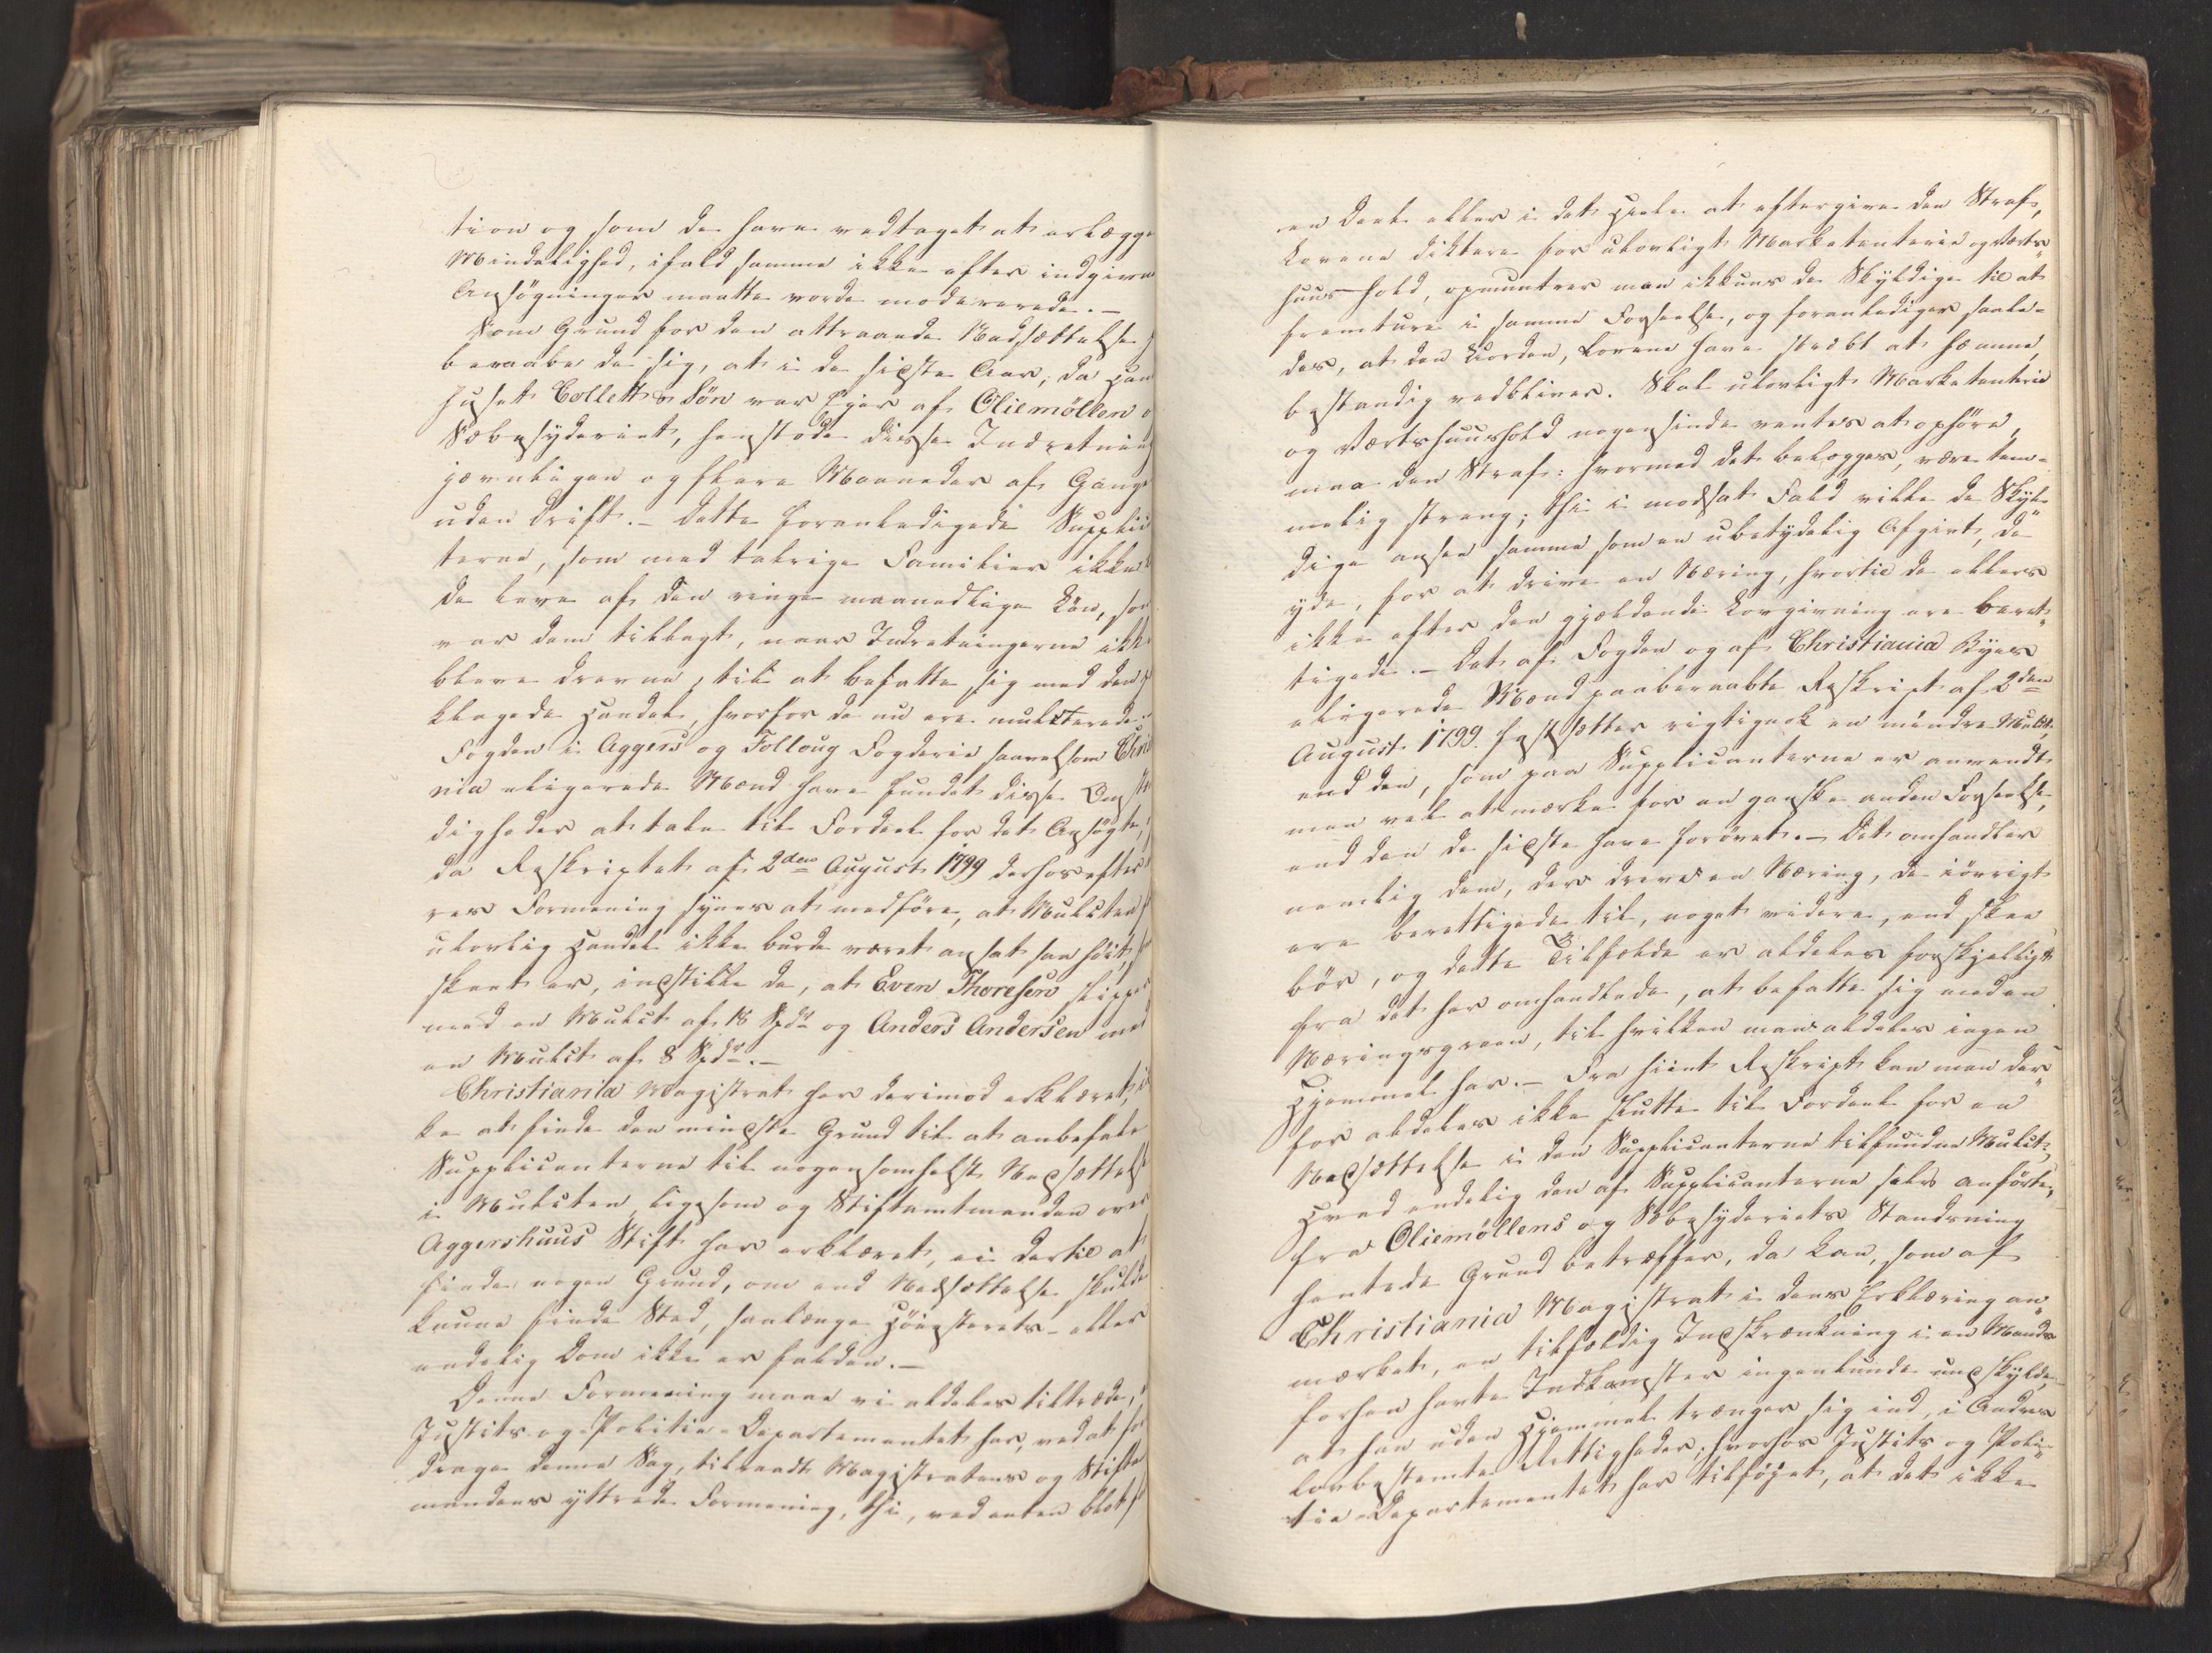 tion og som de have vedtaget at erlægge
Mindelighed, ifald samme ikke efter indgivne
Ansögninger maatte vorde modererede.—
Som Grund for den attraaede Nedsættelse
beraabe de sig, at i de sidste Aar, da Han
huset Collett & Søn var Ejer af Oliemöllen o
Sæbesyderiet, henstode disse Indretning
jævnligen og flere Maaneder af Gange
uden Drift.— Dette foranledigede Supplic
terne, som med talrige Familier ikke
de leve af den ringe maanedlige Lön, som
var dem tillagt, naar Indretningerne ikke
bleve drevne, til at befatte sig med den
klagede Handel, hvorfor de nu ere mulcterede.—
Fogden i Aggers og Folloug Fogderie saavelsom Chri
nia eligerede Mænd have fundet disse Omst
digheder at tale til Fordeel for det Ansögte,
da Reskriptet af 2den August 1799 derhos efter
res Formening synes at medföre, at Mulcten
ulovlig Handel ikke burde været ansat saa höit,
skeet er, indstille de, at Even Thoresen slipper
med en Mulct af 18 Spdr og Anders Andersen med
en Mulct af 8 Spdr.—
Christiania Magistrat har derimod erklæret, ik
ke at finde den mindste Grund til at anbefale
Supplicanterne til nogensomhelst Nedsættelse
i Mulcten ligesom og Stiftamtmanden over
Aggershuus Stift har erklæret, ei dertil at
finde nogen Grund, om end Nedsættelse skulde
kunne finde Sted, saalænge Höiesterets- eller
endelig Dom ikke er falden.—
Denne Formening maae vi aldeles tiltræde,
Justits- og Politie-Departementet har, ved at for
drage denne Sag, tilraadt Magistratens og Stifts
mandens yttrede Formening, thi, ved enten blot
en Deel eller i det Hele at eftergive den Straf,
Lovene diktere for ulovligt Marketenterie og Værts„
huushold, opmuntrer man ikkuns de Skyldige til at
fremture i samme Forseelse, og foranlediger saale-
des, at den Uorden, Lovene have stræbt at hæmme,
bestandig vedbliver. Skal ulovligt Marketenterie
og Værtshuushold nogensinde ventes at ophöre,
maa den Straf: hvormed det belægges, være tem-
melig streng; thi i modsat Fald ville de Skyl„
dige ansee samme som en ubetydelig Afgivt, de
yde, for at drive en Næring, hvortil de ellers
ikke efter den gjældende Lovgivning ere beret„
tigede.— Det af Fogden og af Christiania Byes
eligerede Mænd paaberaabte Reskript af 2den
August 1799 fastsætter rigtignok en mindre Mulct,
end den, som paa Supplicanterne er anvendt
men vel at mærke for en ganske anden Forseelse,
end den de sidste have forövet.— Det omhandler
nemlig dem, der drive en Næring, de iövrigt
ere berettigede til, noget videre, end skee
bör, og dette Tilfælde er aldeles forskjelligt
fra det her omhandlede, at befatte sig med en
Næringsgreen, til hvilken man aldeles ingen
Hjemmel har.— Fra hiint Reskript kan man der„
for aldeles ikke slutte til Fordeel for en
Nedsættelse i den Supplicanterne tilfundne Mulct;
Hvad endelig den af Supplicanterne selv anförte,
fra Oliemøllens og Sæbesyderiets Standsning
hentede Grund betræffer, da kan, som af
Christiania Magistrat i dens Erklæring an„
mærket, en tilfældig Indskrænkning i en Mands
forhen havte Indkomster ingenlunde undskylde,
at han uden Hjemmel trænger sig ind i Andres
lovbestemte Rettigheder; hvorhos Justits og Poli„
tie-Departementet har tilföjet, at det ikke